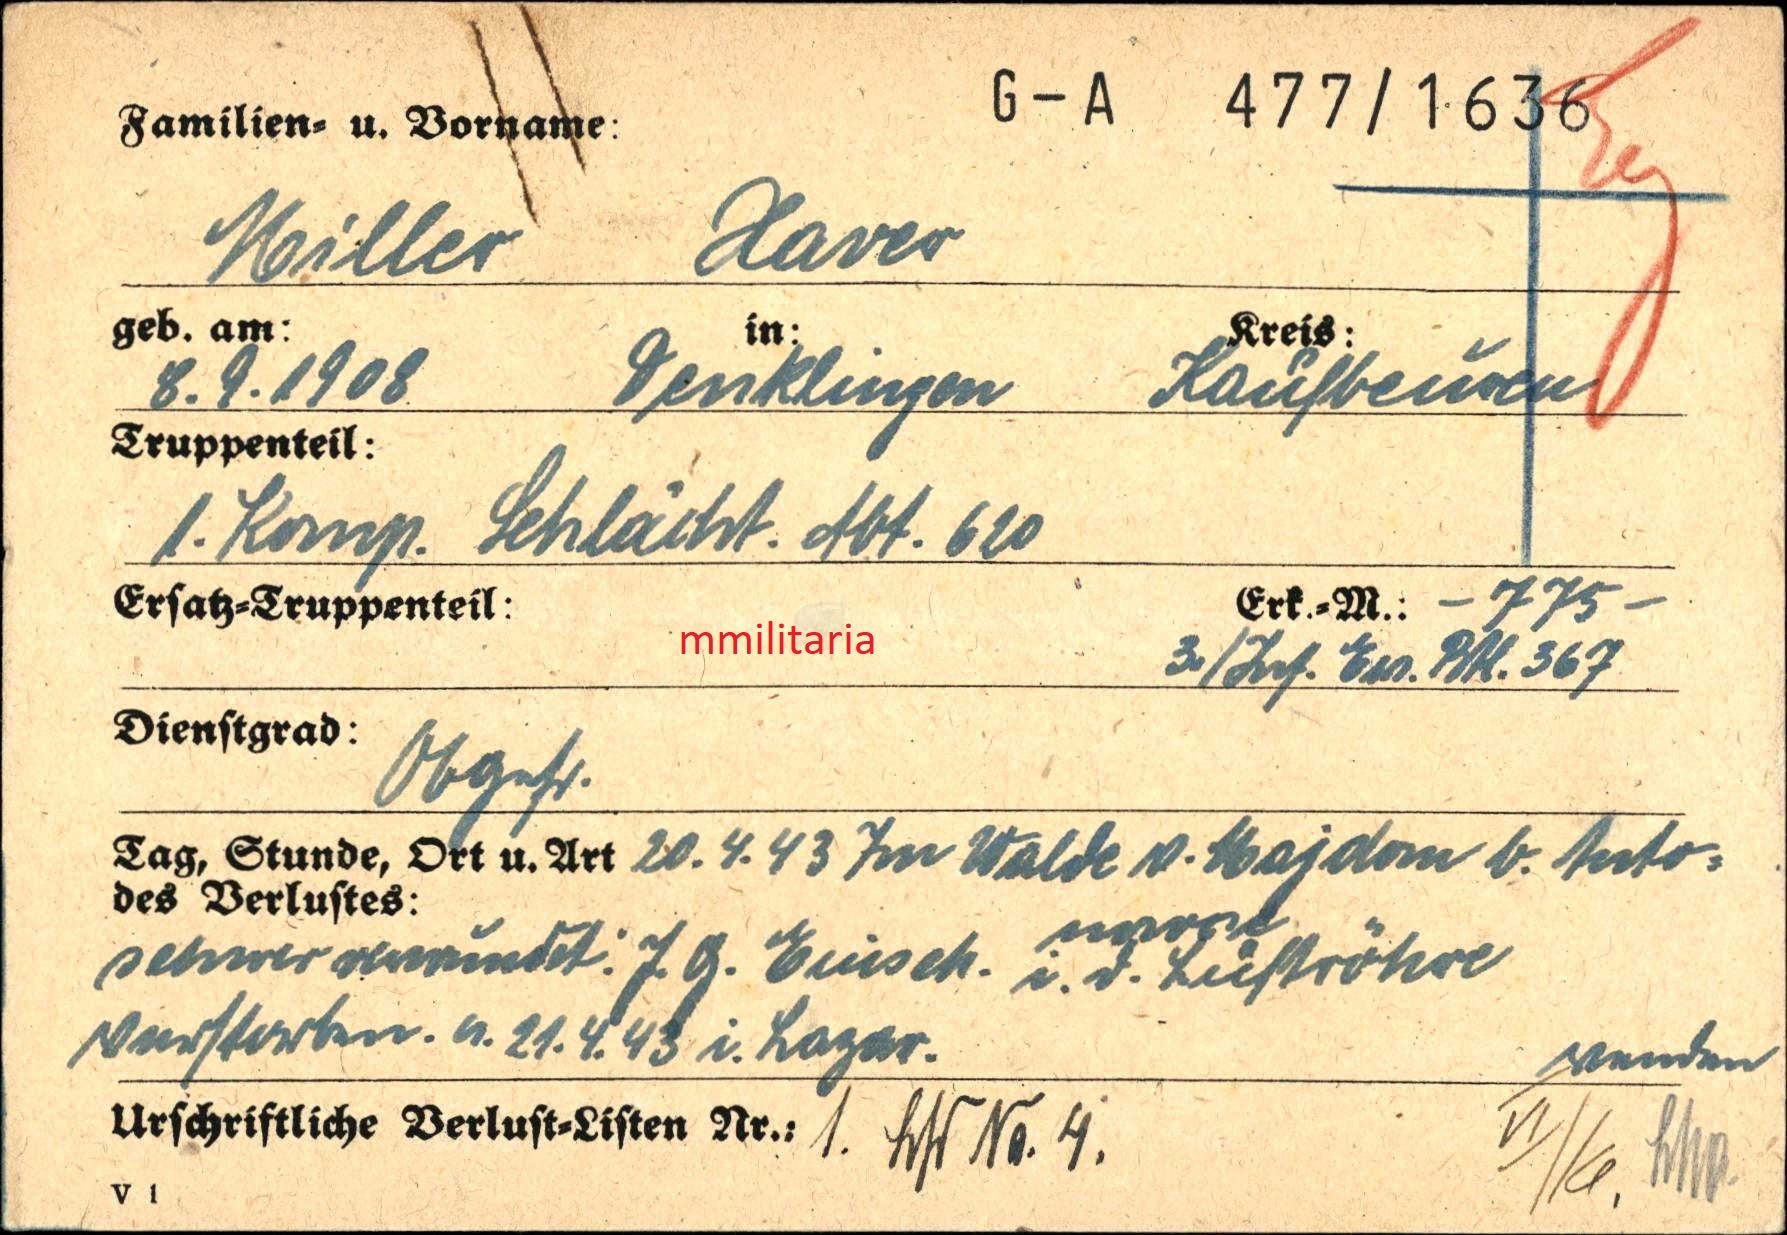 G-A 477/1636
Familien- u. Vorname:
Miller Xaver
geb. am: in: Kreis:
8.9.1908 Denklingen Kaufbeuren
Truppenteil:
1. Komp. Schlächt. Abt. 620
Ersatz-Truppenteil: Erk.-M.: -775-
mmilitaria
3./Inf. Ers. Btl. 367
Dienstgrad:
Obgefr.
Tag, Stunde, Ort u. Art 20.4.43 Im Walde v. Majdom b. Anto-
des Verlustes:
schwer verwundet: J.G. Einsch. i. d. Luftröhre
verstorben. a. 21.4.43 i. Lazar.
wenden
Urschriftliche Verlust-Listen Nr.: 1. No. 4.
V 1